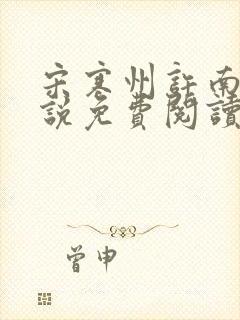 宋寒州許南
說免費閱讀
曾申